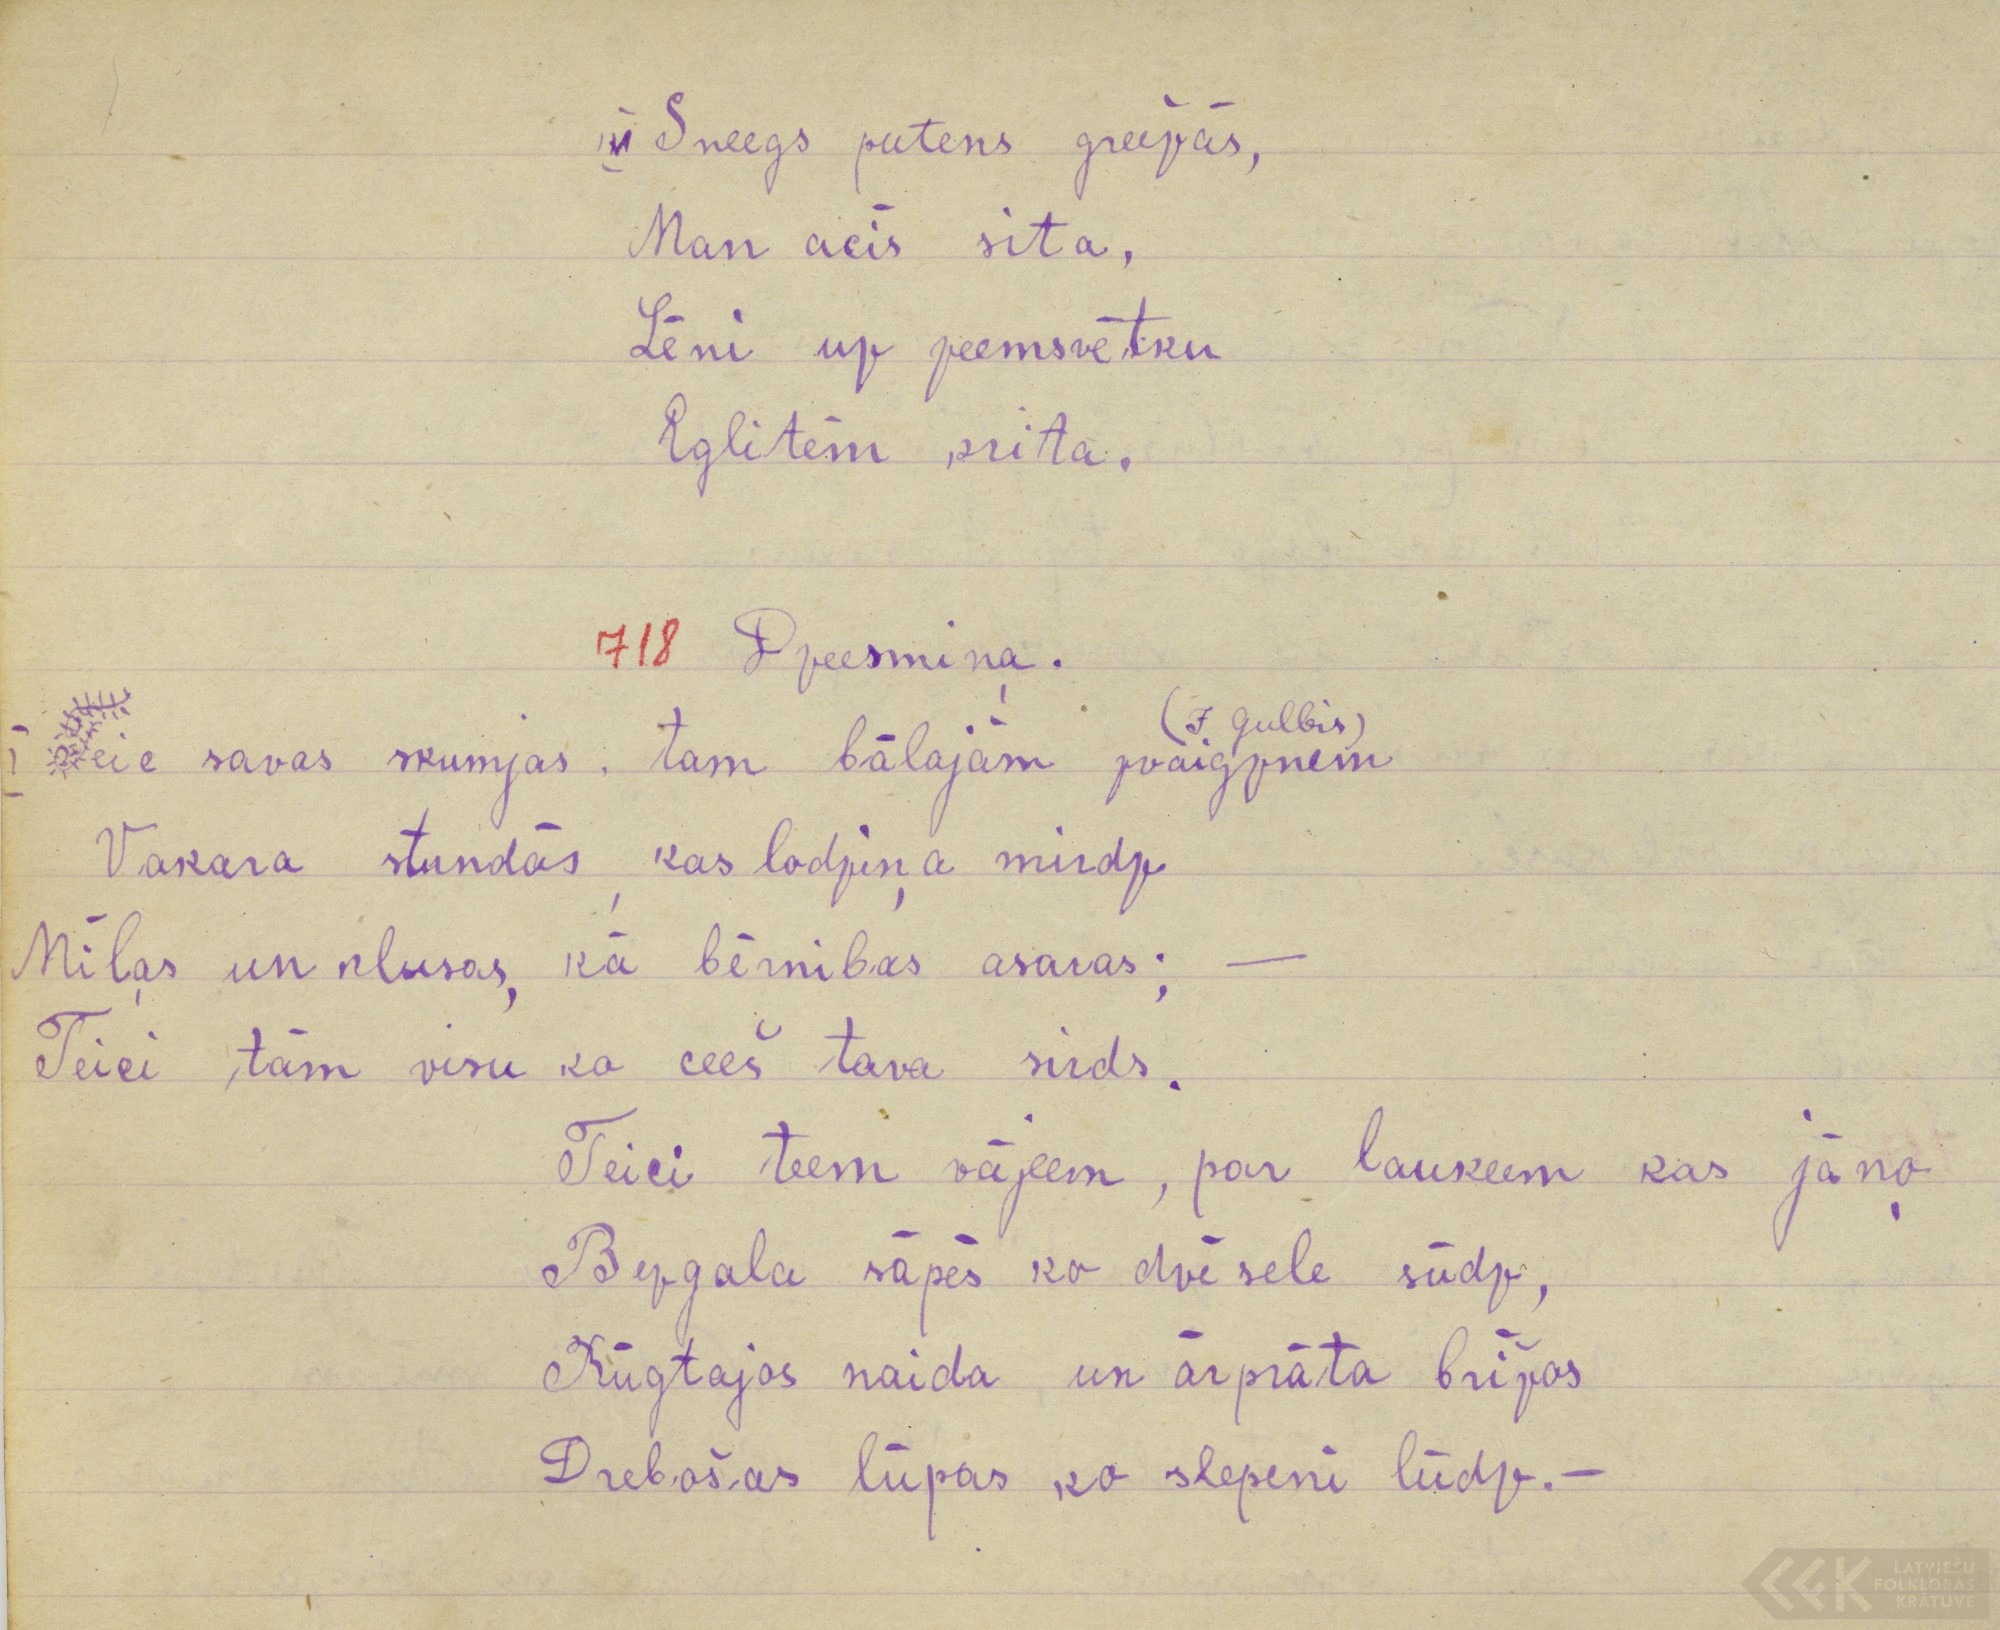 III Sneegs putens greežās,
Man acīs sita,
Lēni uz zeemsvētku
Eglitēm krita.
718 Dzeesmiņa.
(F. Gulbis)
I Teic savas skumjas, tam bālajām zvaigznem
Vakara stundās, kas lodziņa mirdz
Mīļas un klusas, kā bērnibas asaras; —
Teici tām visu ko ceeš tava sirds.
Teici teem vājeem, par laukeem kas jāņo
Bezgala sāpēs ko dvēsele sūdz,
Rūgtajos naida un ārprāta brīžos
Drebošas lūpas ko slepeni lūdz. —
LATVIEŠU
FOLKLORAS
KRĀTUVE